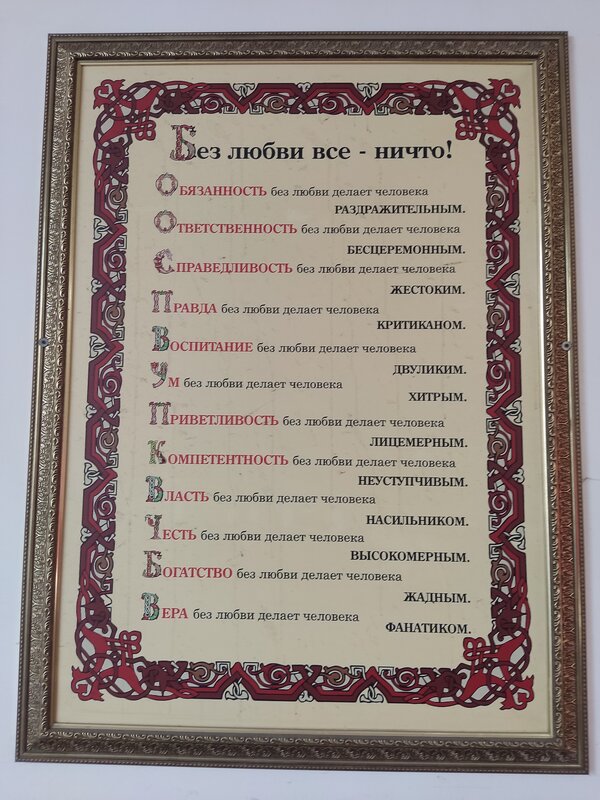 Без любви все - ничто!
Обязанность без любви делает человека
раздражительным.
Ответственность без любви делает человека
бесцеремонным.
Справедливость без любви делает человека
жестоким.
Правда без любви делает человека
критиканом.
Воспитание без любви делает человека
двуликим.
Ум без любви делает человека
хитрым.
Приветливость без любви делает человека
лицемерным.
Компетентность без любви делает человека
неуступчивым.
Власть без любви делает человека
насильником.
Честь без любви делает человека
высокомерным.
Богатство без любви делает человека
жадным.
Вера без любви делает человека
фанатиком.